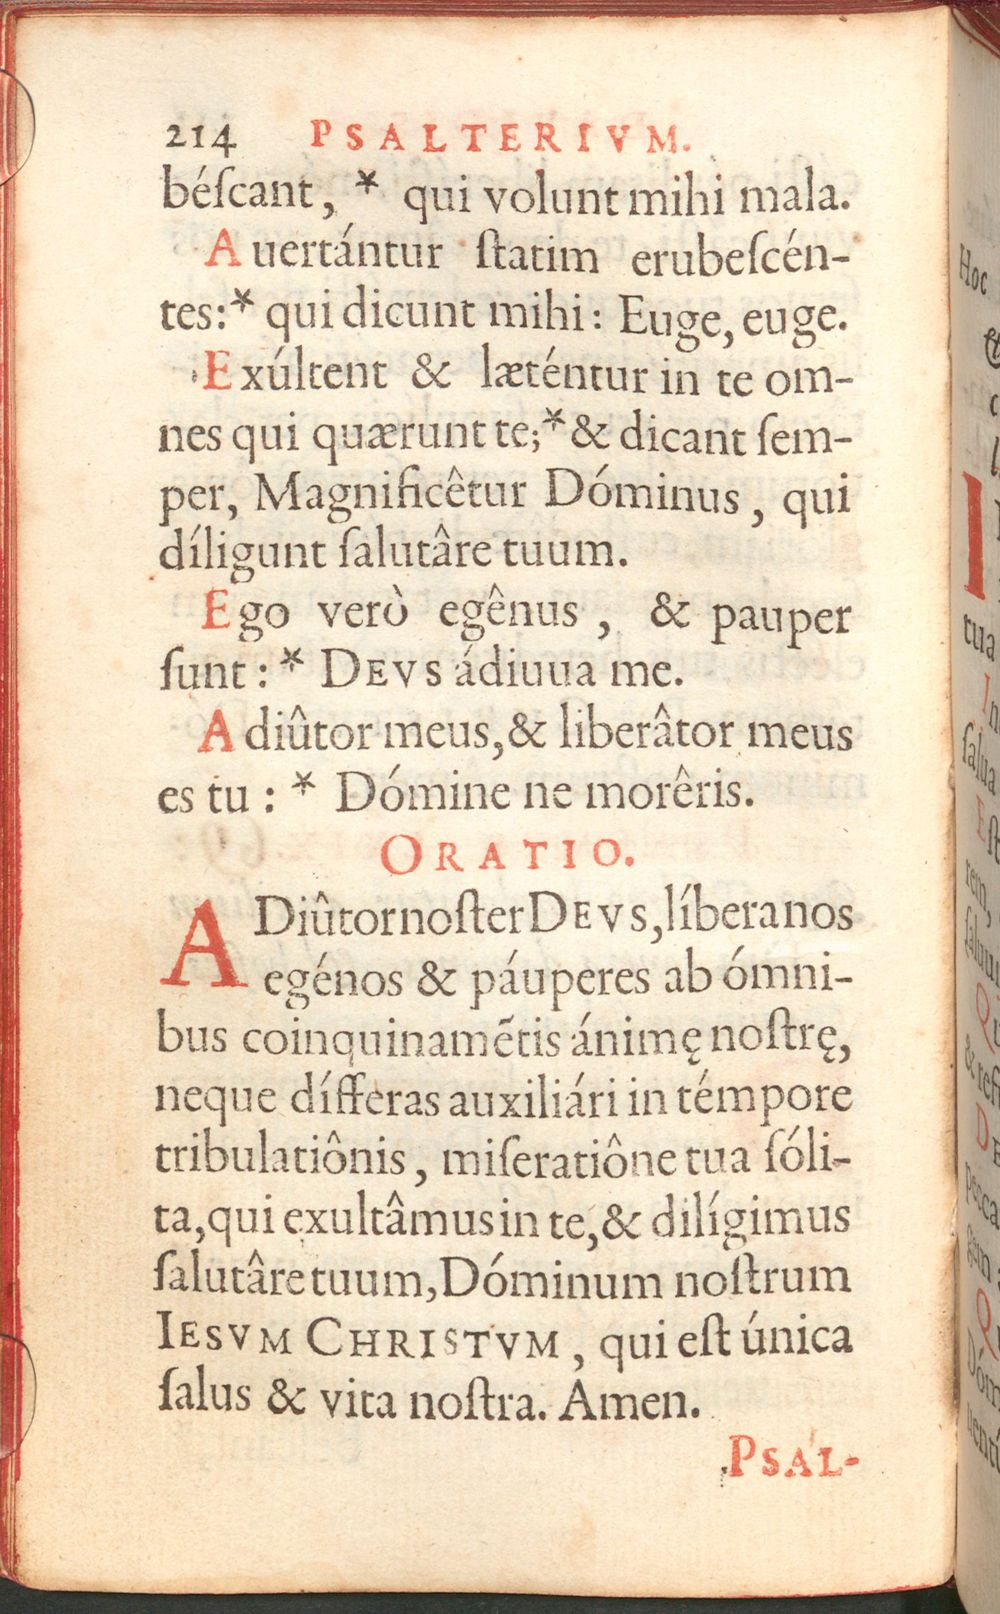 214 PSALTERIVM.
béſcant, * qui volunt mihi mala.
Auertántur ſtatim erubeſcén-
tes:* qui dicunt mihi: Euge, euge.
Exúltent & læténtur in te om-
nes qui quærunt te;* & dicant ſem-
per, Magnificêtur Dóminus, qui
díligunt ſalutâre tuum.
Ego verò egênus, & pauper
ſunt: * DEVS ádiuua me.
Adiûtor meus, & liberâtor meus
es tu: * Dómine ne morêris.
ORATIO.
ADiûtor noſter DEVS, líbera nos
egénos & páuperes ab ómni-
bus coinquinamẽtis ánimę noſtrę,
neque dífferas auxiliári in témpore
tribulatiônis, miſeratiône tua ſóli-
ta, qui exultâmus in te, & dilígimus
ſalutâre tuum, Dóminum noſtrum
IESVM CHRISTVM, qui eſt única
ſalus & vita noſtra. Amen.
PSAL-
Hoc
tua
In
ſalua
Eſt
rem,